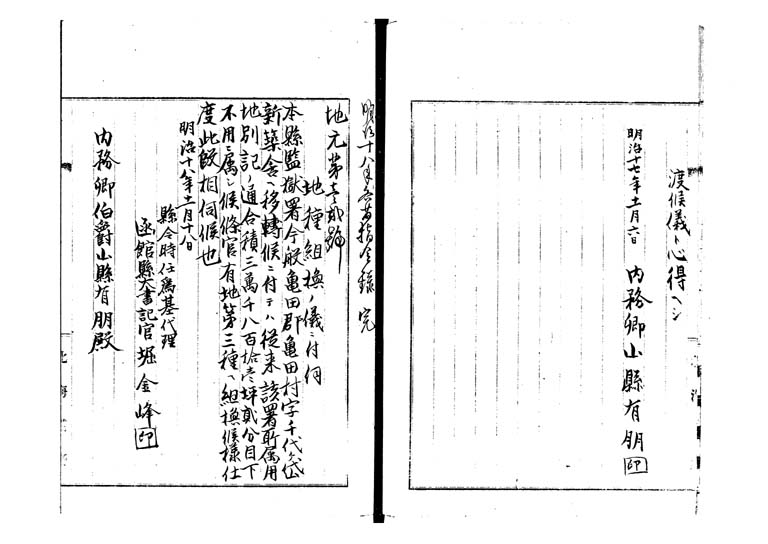 渡候儀ト心得ヘシ
明治十七年十一月六日
内務卿山縣有朋 印
明治十八年 指令録 完
地元第壱弐号
地種組換ノ儀ニ付伺
本縣監獄署今般亀田郡亀田村字千代ヶ岱
新築舎ヘ移轉候ニ付テハ従来該署所属用
地別記ノ通合積三萬千八百拾壱坪貳分目下
不用ニ属シ候條官有地第三種ヘ組換候様仕
度此段相伺候也
明治十八年十一月十八日
縣令時任為基代理
函館縣大書記官堀金峰 印
内務卿伯爵山縣有朋殿
北海